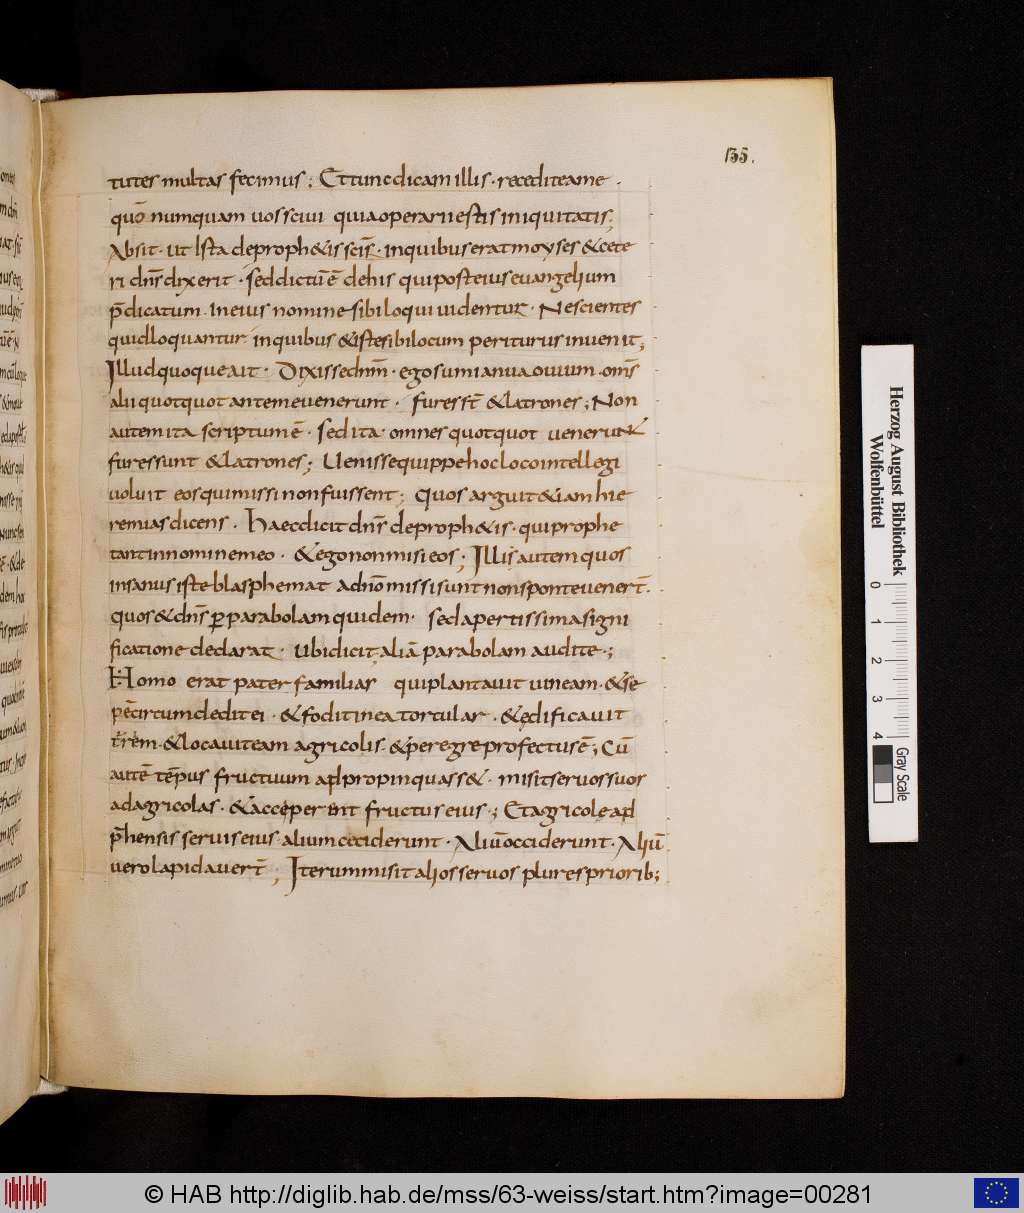 135.
tutes multas fecimus; Et tunc dicam illis · recedite a me ·
quō numquam uos sciui quia operarii estis iniquitatis;
Absit · ut ista de proph&is scīs · in quibus erat moyses & cete
ri dn̄s dixerit · sed dictū ē de his qui post eius euangelium
p̄dicatum · in eius nomine sibi loqui uidentur · Nescientes
quid loquantur in quibus & iste sibi locum periturus inuenit;
Illud quoque ait · Dixisse dn̄m · ego sum ianua ouium · om̄s
alii quotquot ante me uenerunt · fures st̄ & latrones; Non
autem ita scriptum ē · sed ita · omnes quotquot uenerunt
fures sunt & latrones; Uenisse quippe hoc loco intellegi
uoluit eos qui missi non fuissent; quos arguit &iam hie
remias dicens · Haec dicit dn̄s de proph&is · qui prophe
tant in nomine meo · & ego non misi eos; Illi autem quos
insanus iste blasphemat a dn̄o missi sunt non sponte uener̄ ·
quos & dn̄s ꝑ parabolam quidem · sed apertissima signi
ficatione declarat · Ubi dicit aliā parabolam audite ·;
Homo erat pater familias qui plantauit uineam · & se
pē circum dedit ei · & fodit in ea torcular · & edificauit
tr̄rem · & locauit eam agricolis · & peregre profectus ē; Cū
autē tēpus fructuum adpropinquass& · misit seruos suos
ad agricolas · & acciperent fructus eius ·; Et agricole ad
p̄hensis seruis eius alium ceciderunt · Aliū occiderunt · Aliū
uero lapidauer̄t; Iterum misit alios seruos plures priorib;
Herzog August Bibliothek
Wolfenbüttel
0 1 2 3 4
Gray Scale
© HAB http://diglib.hab.de/mss/63-weiss/start.htm?image=00281